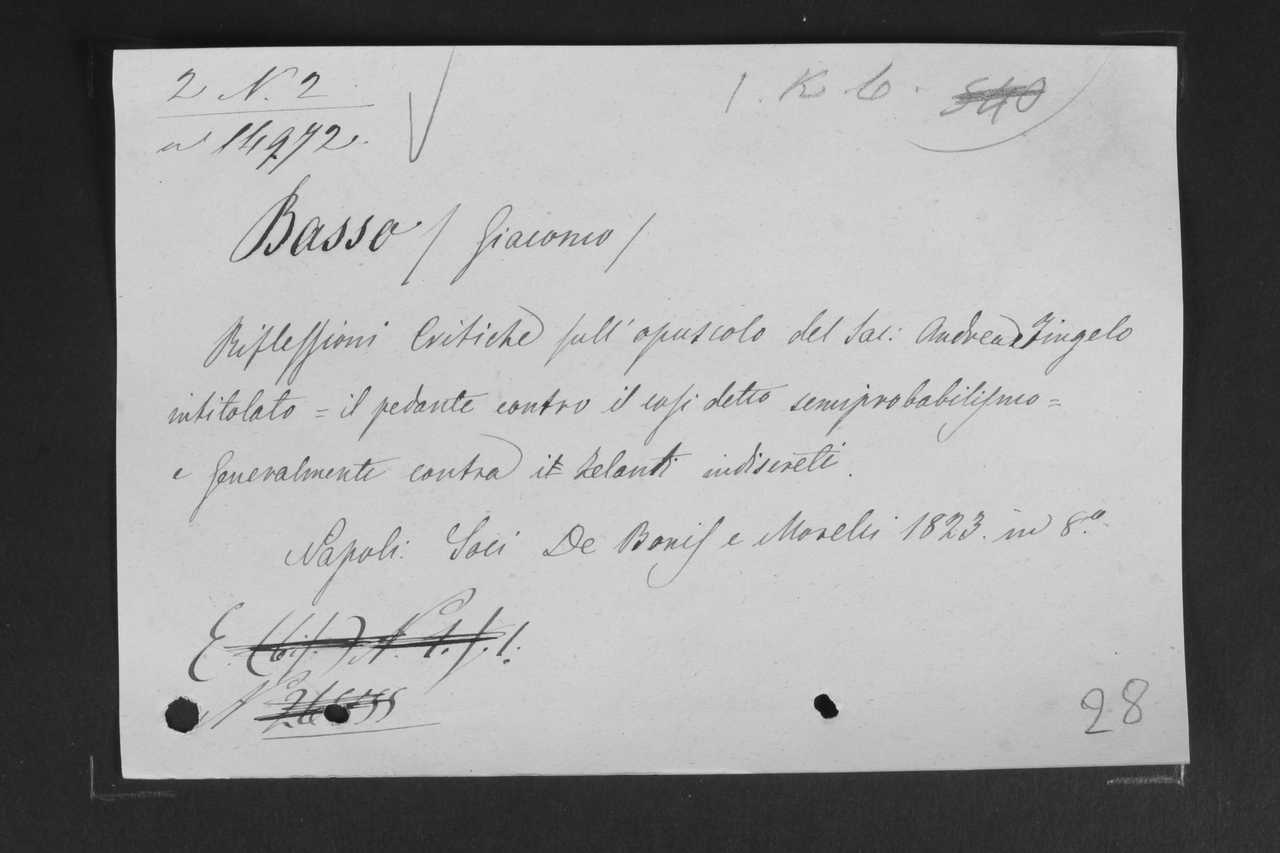 2 N. 2
n 14972.
1. K 6. 540
Basso / Giacomo /
Riflessioni Critiche sull' opuscolo del Sac: Andrea Zingelo
intitolato = il pedante contro il così detto semiprobabilismo =
e generalmente contra i zelanti indiscreti.
Napoli. Soci De Bonis e Morelli 1823. in 8.o
E (bis.) N. 1. f. 1.
N
28